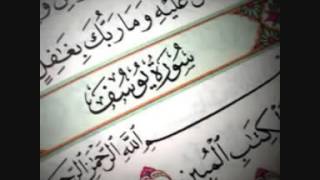 عَلَيْهِ وَمَا رَبُّكَ بِغَفِلٍ
سُورَةُ يُوسُفَ
اللَّهِ الرَّحْمَٰنِ الرَّحِيمِ
الْكِتَابِ الْمُبِينِ